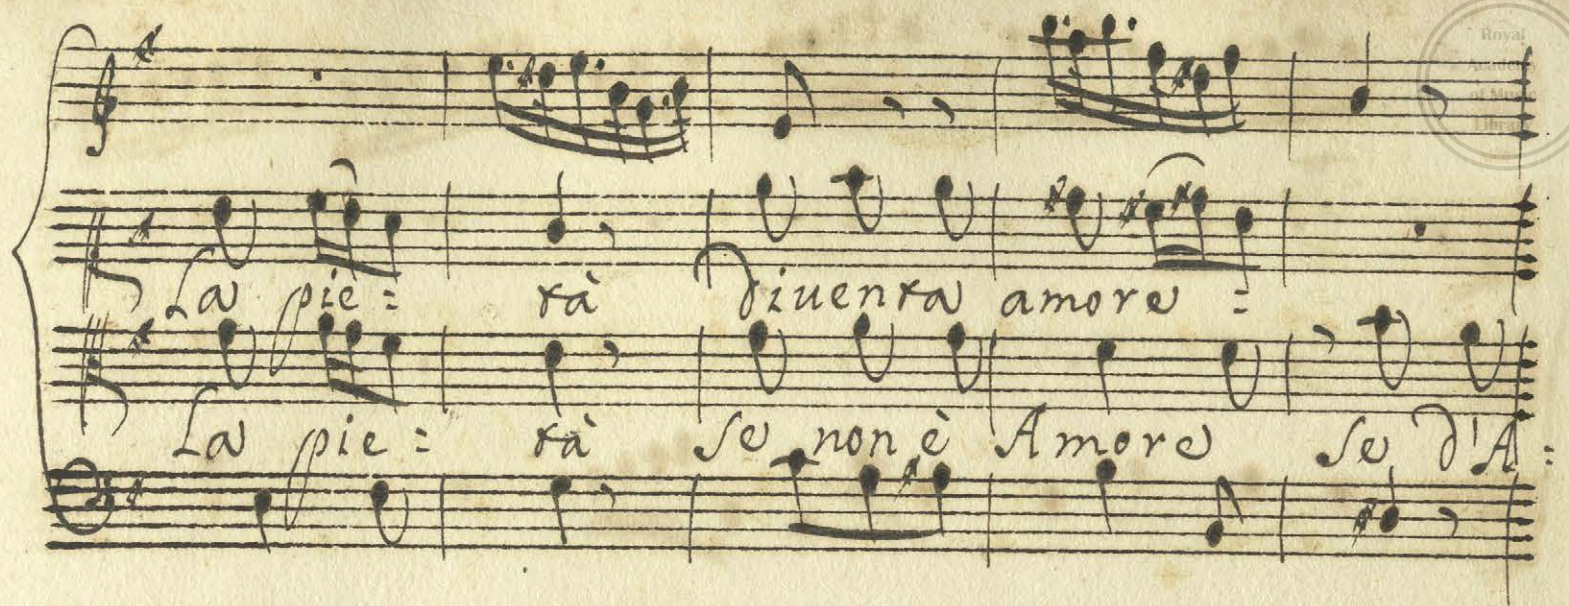 Royal
Academy
of Music
Library
La pie = tà diventa amore =
La pie = tà Se non è Amore Se d'A =